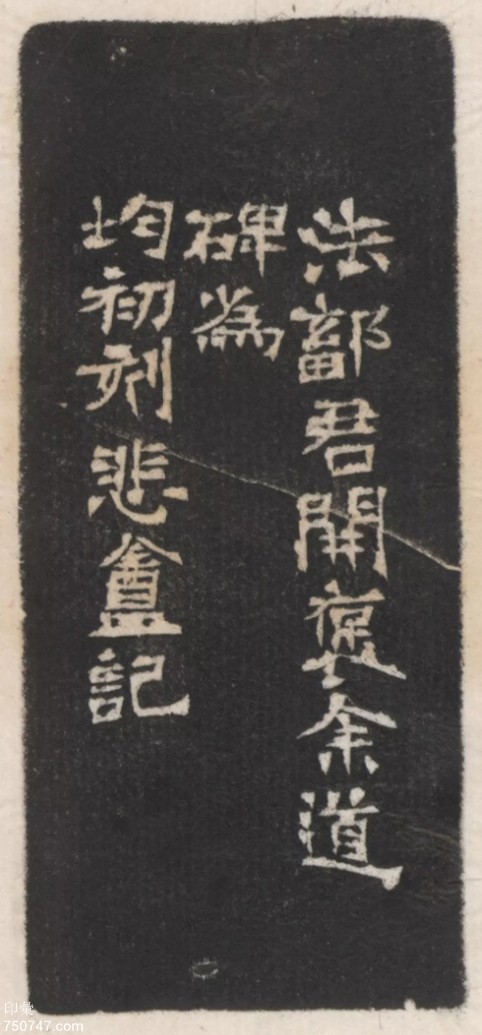 法鄐君開褒余道
碑為
均初刻悲盦記
印彙
750747.com